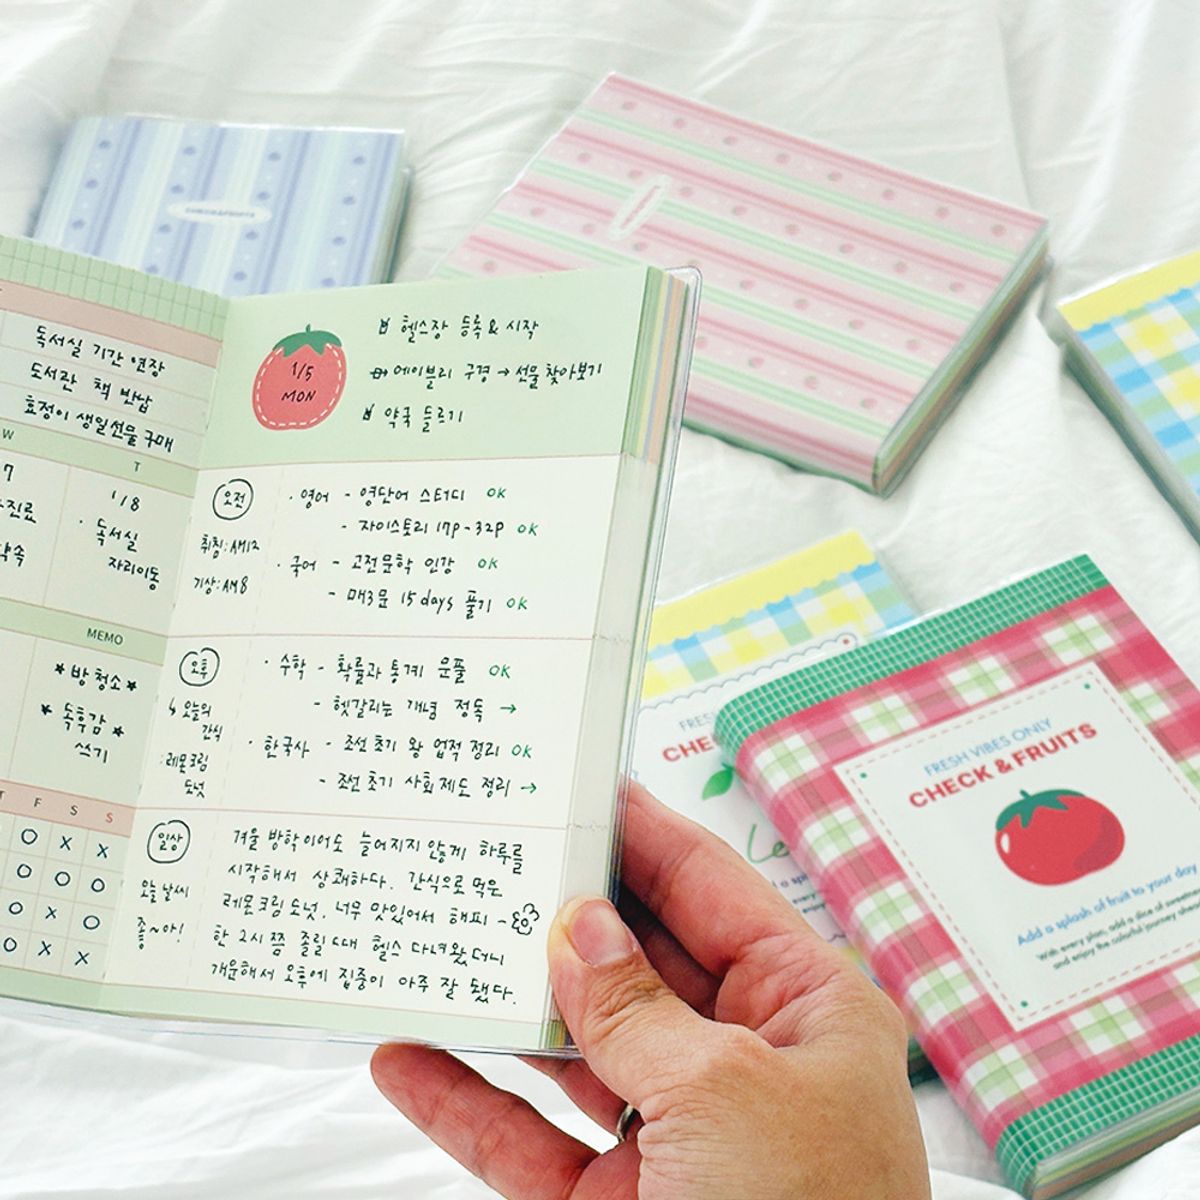 독서실 기간 연장
도서관 책 반납
효정이 생일선물 구매
W
T
7
1/8
진료
· 독서실
자리이동
약속
MEMO
★ 방 청소 ★
★ 독후감 ★
쓰기
T F S S
O X X
O O O
O X O
O X X
1/5
MON
헬스장 등록 & 시작
에이블리 구경 → 선물 찾아보기
약국 들르기
오전
취침: AM12
기상: AM8
· 영어 - 영단어 스터디 OK
- 자이스토리 17p-32p OK
· 국어 - 고전문학 인강 OK
- 매3문 15days 풀기 OK
오후
↳ 오늘의
간식
: 레몬크림
도넛
· 수학 - 확률과 통계 문풀 OK
- 헷갈리는 개념 정독 →
· 한국사 - 조선 초기 왕 업적 정리 OK
- 조선 초기 사회 제도 정리 →
일상
오늘 날씨
좋~아!
겨울 방학이어도 늘어지지 않게 하루를
시작해서 상쾌하다. 간식으로 먹은
레몬크림 도넛, 너무 맛있어서 해피~
한 2시쯤 졸릴 때 헬스 다녀왔더니
개운해서 오후에 집중이 아주 잘 됐다.
FRES
CHE
Le
FRESH VIBES ONLY
CHECK & FRUITS
Add a splash of fruit to your day
With every plan, add a slice of sweetness
and enjoy the colorful journey